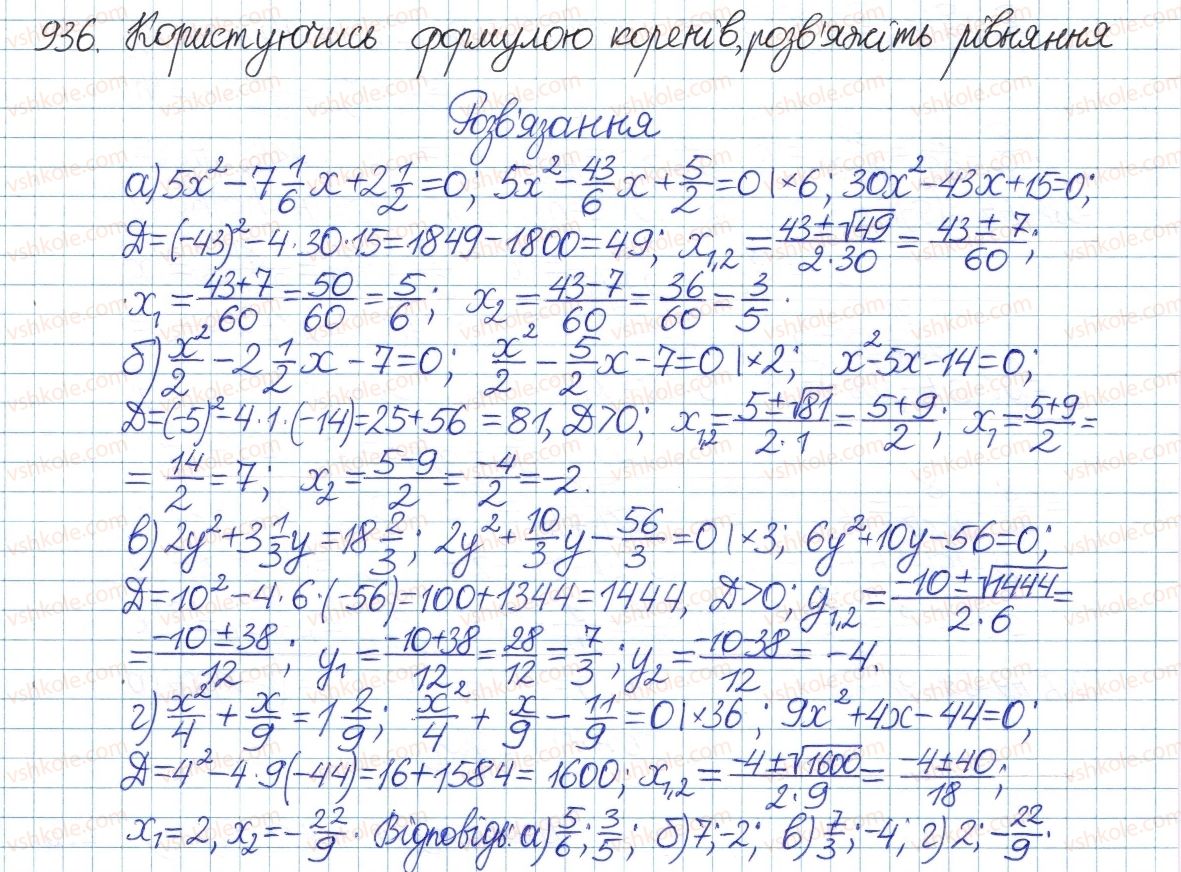 936. Користуючись формулою коренів, розв'яжіть рівняння
Розв'язання
а) 5x² - 7 1/6 x + 2 1/2 = 0; 5x² - 43/6 x + 5/2 = 0 | ×6; 30x² - 43x + 15 = 0;
Д = (-43)² - 4·30·15 = 1849 - 1800 = 49; x₁,₂ = (43 ± √49)/(2·30) = (43 ± 7)/60;
x₁ = (43+7)/60 = 50/60 = 5/6; x₂ = (43-7)/60 = 36/60 = 3/5.
б) x²/2 - 2 1/2 x - 7 = 0; x²/2 - 5/2 x - 7 = 0 | ×2; x² - 5x - 14 = 0;
Д = (-5)² - 4·1·(-14) = 25 + 56 = 81, Д > 0; x₁,₂ = (5 ± √81)/(2·1) = (5+9)/2; x₁ = (5+9)/2 =
= 14/2 = 7; x₂ = (5-9)/2 = -4/2 = -2.
в) 2y² + 3 1/3 y = 18 2/3; 2y² + 10/3 y - 56/3 = 0 | ×3; 6y² + 10y - 56 = 0;
Д = 10² - 4·6·(-56) = 100 + 1344 = 1444, Д > 0; y₁,₂ = (-10 ± √1444)/(2·6) =
= (-10 ± 38)/12; y₁ = (-10+38)/12 = 28/12 = 7/3; y₂ = (-10-38)/12 = -4.
г) x²/4 + x/9 = 1 2/9; x²/4 + x/9 - 11/9 = 0 | ×36; 9x² + 4x - 44 = 0;
Д = 4² - 4·9(-44) = 16 + 1584 = 1600; x₁,₂ = (-4 ± √1600)/(2·9) = (-4 ± 40)/18;
x₁ = 2, x₂ = -22/9. Відповідь: а) 5/6; 3/5; б) 7; -2; в) 7/3; -4; г) 2; -22/9.